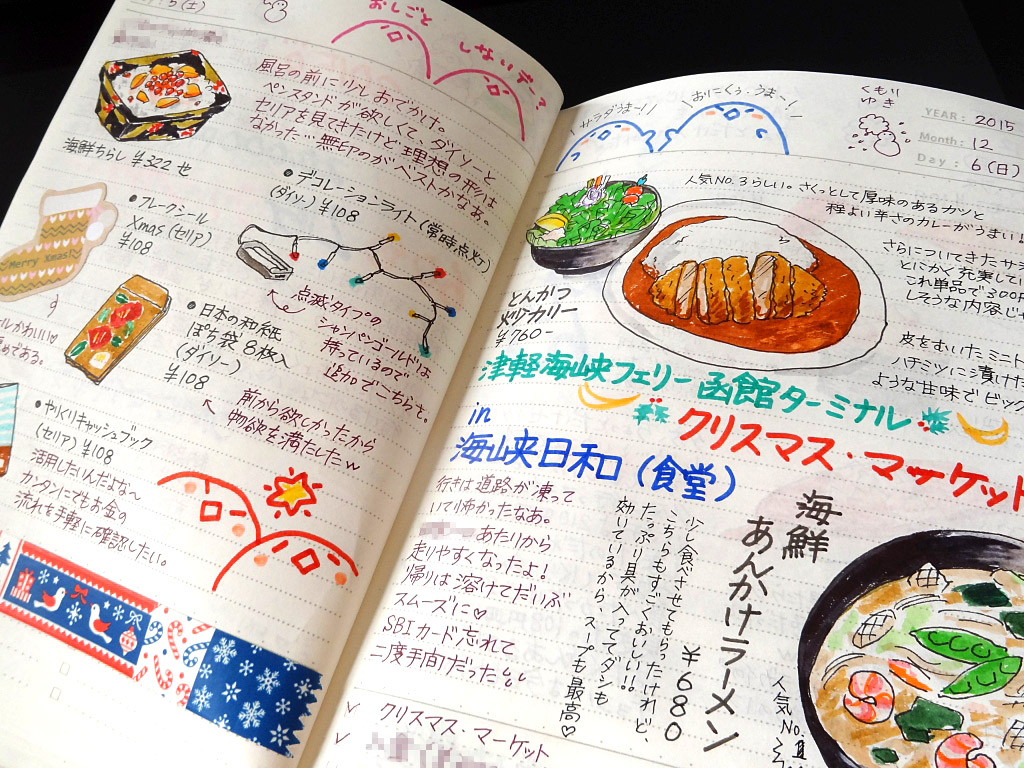 5(土)
おしごと
しないぞー
風呂の前に少しおでかけ。
ペンスタンドが欲しくて、ダイソーと
セリアを見てきたけど理想の形は
なかった…無印のがベストかなあ。
海鮮ちらし ¥322 セ
●デコレーションライト(常時点灯)
(ダイソー) ¥108
●フレークシール
Xmas(セリア)
¥108
Merry Xmas!
点滅タイプの
シャンパンゴールドは
持っているので
追加でこちらを。
●日本の和紙
ぽち袋 8枚入
(ダイソー)
¥108
前から欲しかったから
物欲を満たしたw
●やりくりキャッシュブック
(セリア) ¥108
活用したいんだよな〜
カンタンにでもお金の
流れを手軽に確認したい。
サラダうまー!!
おにくぅ・うまー!
くもり
ゆき
YEAR: 2015
Month: 12
Day: 6(日)
人気No.3らしい。さくっとして厚味のあるカツと
程よい辛さのカレーがうまい!
さらについてきたサラ
とにかく充実してい
これ単品で300円
しそうな内容じゃ
とんかつ
カリー
¥760-
皮をむいたミニト
ハチミツに漬けた
ような甘味でビック
津軽海峡フェリー函館ターミナル
クリスマス・マーケット
in
海峡日和(食堂)
行きは道路が凍って
いて怖かったなあ。
あたりから
走りやすくなったよ!
帰りは溶けてだいぶ
スムーズに♡
SBIカード忘れて
二度手間だった
海鮮
あんかけラーメン
¥680
少し食べさせてもらったけれど、
こちらもすごくおいしい!!
たっぷり具が入ってダシも
効いているから、スープも最高♡
人気No.
クリスマス・マーケット